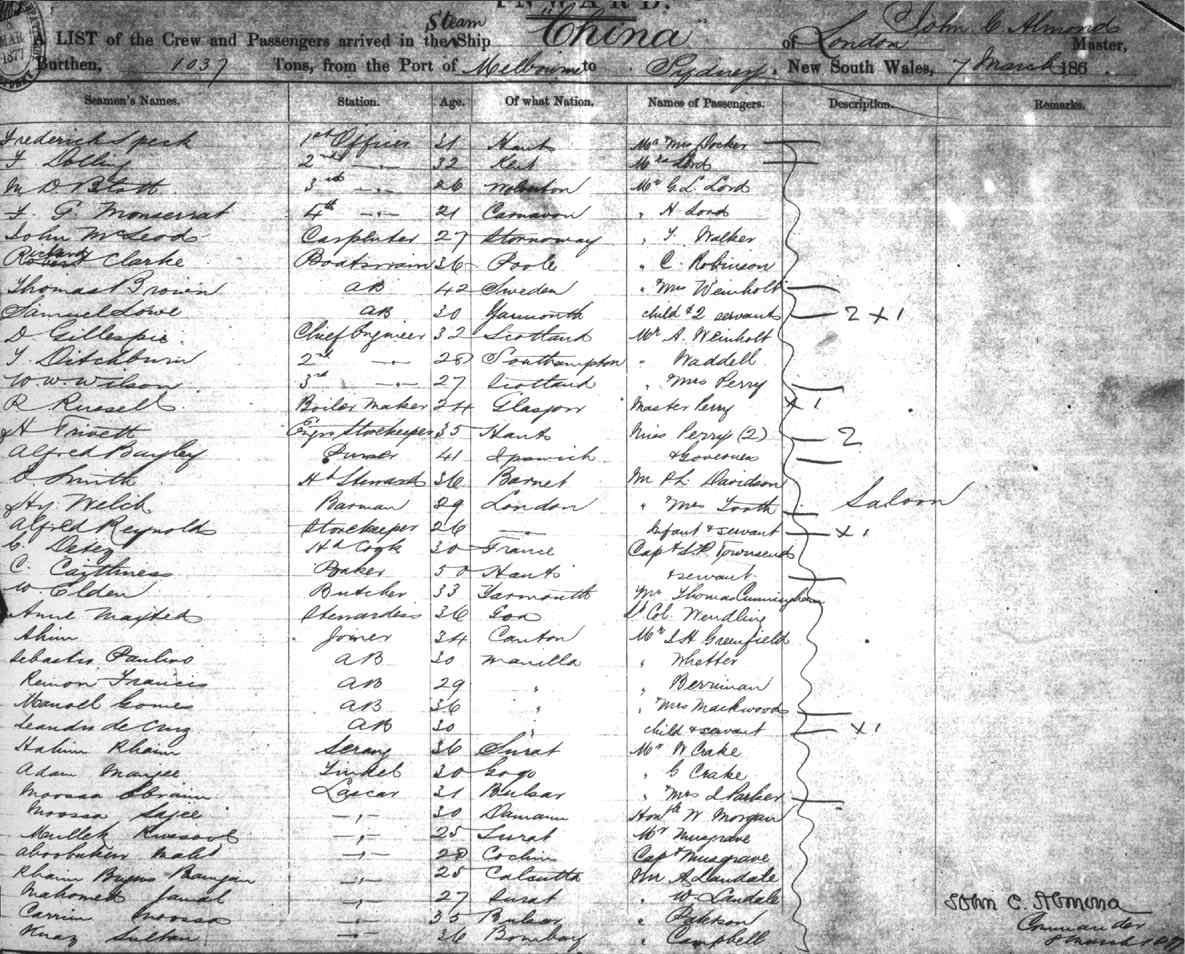 INWARD.
LIST of the Crew and Passengers arrived in the Steam Ship China of London John C Almond Master,
Burthen, 1037 Tons, from the Port of Melbourne to Sydney, New South Wales, 7 March 186
MAR 1877
Seamen's Names. Station. Age. Of what Nation. Names of Passengers. Description. Remarks.
Frederick Speck 1st Officer 31 Hants Mr Mrs Docker
2nd 32 Kent Mrs Lord
3rd 26 Mr C. L. Lord
F. G. Monserrat 4th 21 Carnavon " H Lord
John McLeod Carpenter 27 Stornoway " Walker
Richard Clarke Boatswain 36 Poole " C. Robinson
Thomas Brown AB 42 Sweden " Mrs Weinholt
Samuel Lowe AB 30 Yarmouth child & 2 servants 2 x 1
D. Gillespie Chief Engineer 32 Scotland Mr A. Weinholt
Ditchburn 2nd 28 Southampton " Waddell
W. W. Wilson 3rd 27 Scotland " Mrs Perry
R Russell Boiler Maker 24 Glasgow Master Perry x 1
H Trivett Engrs Storekeeper 35 Hants Miss Perry (2) 2
Alfred Bayley Purser 41 Ipswich & Governess
Smith Hd Steward 36 Barnet Davidson
Hy Welch Barman 29 London " Mrs Tooth Saloon
Alfred Reynolds Storekeeper 26 Infant & servant x 1
Hd Cook 30 France Capt Townsend
C. Caithness Baker 50 Hants & servant
W. Elden Butcher 33 Yarmouth Mr Thomas Cunningham
Anne Stewardess 36 Goa Lt Col. Wendling
Ahim Joiner 34 Canton Mr Greenfield
Sebastio Paulino AB 30 Manilla " Whetter
Remon Francis AB 29 " " Berriman
Manoel Gomes AB 36 " " Mrs Mackwood
Leandro de Cruz AB 30 " child & servant x 1
Serang 36 Surat Mr W Crake
Adam Tindel 30 Gogo " G Crake
Moossa Ebraim Lascar 31 Bulsar " Mrs Parker
Moossa 30 Damaun Honble W Morgan
25 Surat Mr Musgrave
28 Cochin Capt Musgrave
25 Calcutta Mr A Landale
Mahomed 27 Surat " W Landale
Moossa 35 Bulsar " Jackson
Sultan 36 Bombay " Campbell
John C. Almond
Commander
8 March 1877